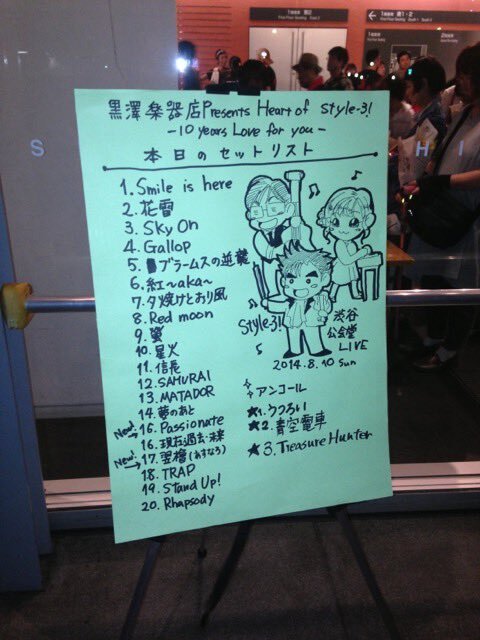 黒澤楽器店Presents Heart of Style-3!
-10 years Love for you-
本日のセットリスト
1. Smile is here
2. 花雪
3. Sky On
4. Gallop
5. ブラームスの逆襲
6. 紅~aka~
7. 夕焼けとおり風
8. Red moon
9. 蛍
10. 星火
11. 信長
12. SAMURAI
13. MATADOR
14. 夢のあと
New! 15. Passionate
16. 現在過去未来
New! 17. 翌檜(あすなろ)
18. TRAP
19. Stand Up!
20. Rhapsody
Style-3!
渋谷
公会堂
LIVE
2014.8.10 Sun
アンコール
★1. うつろい
★2. 青空電車
★3. Treasure Hunter
S
H I